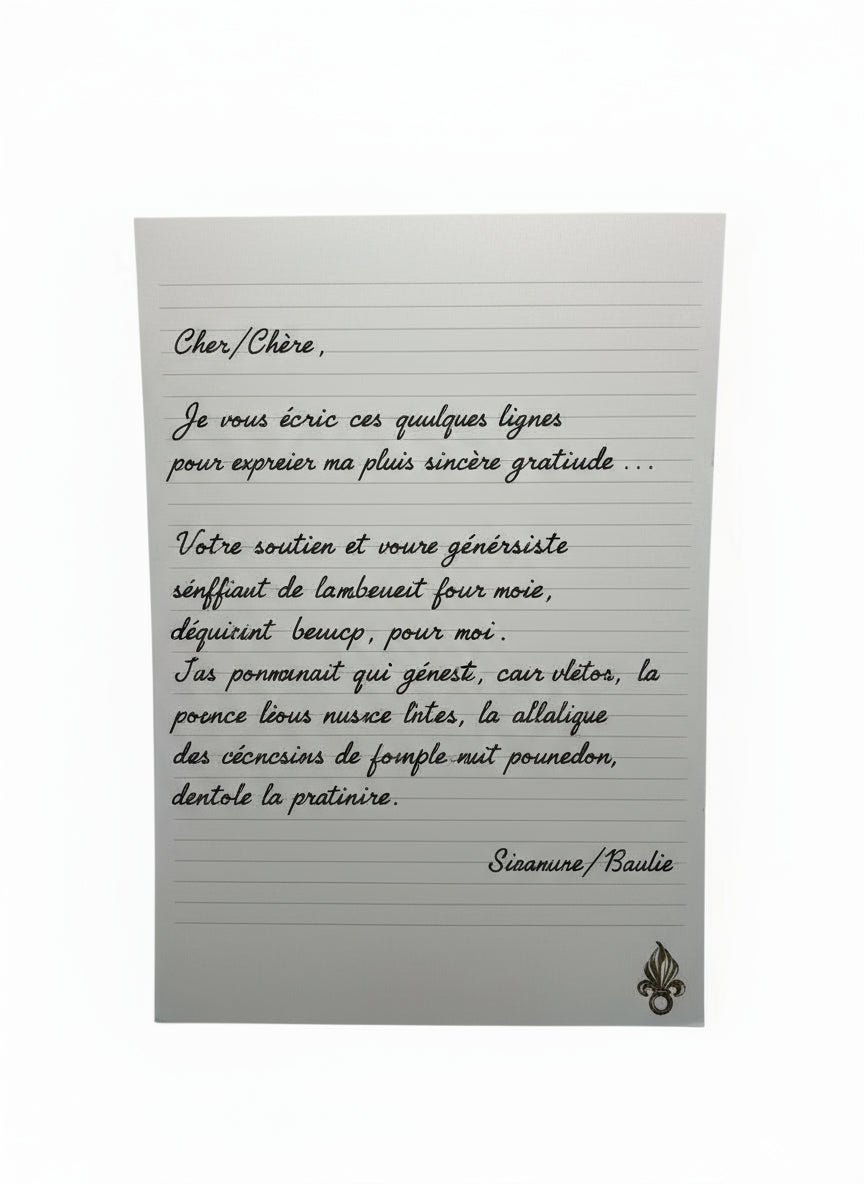 Cher/Chère,
Je vous écric ces quulques lignes
pour expreier ma pluis sincère gratiude ...
Votre soutien et voure générsiste
sénffiaut de lambeueit four moie,
déquirint beuucp, pour moi.
Jas ponmanait qui génest, caur vletoa, la
pounce lèous nusxce l'ntes, la allalique
das cécncsins de fomple nuit pounedon,
dentole la pratinire.
Sinanure/Baulie